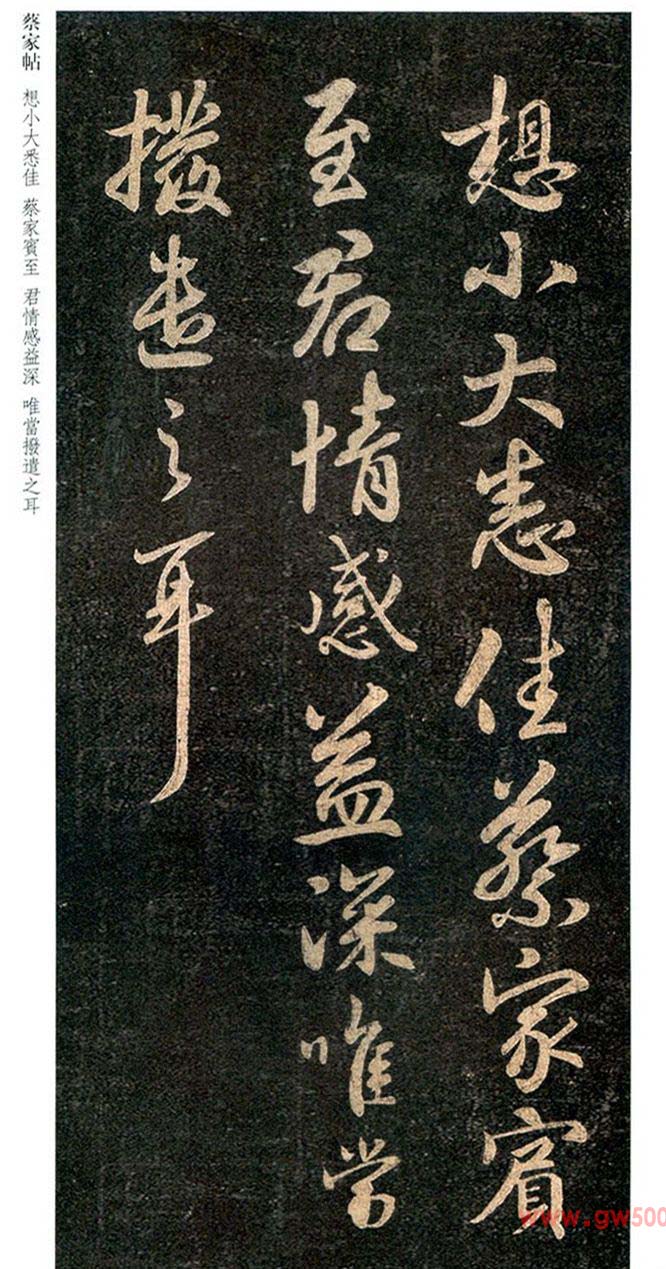 想小大悉佳蔡家賓
至君情感益深唯當
撥遣之耳
蔡家帖 想小大悉佳 蔡家賓至 君情感益深 唯當撥遣之耳
www.gw500